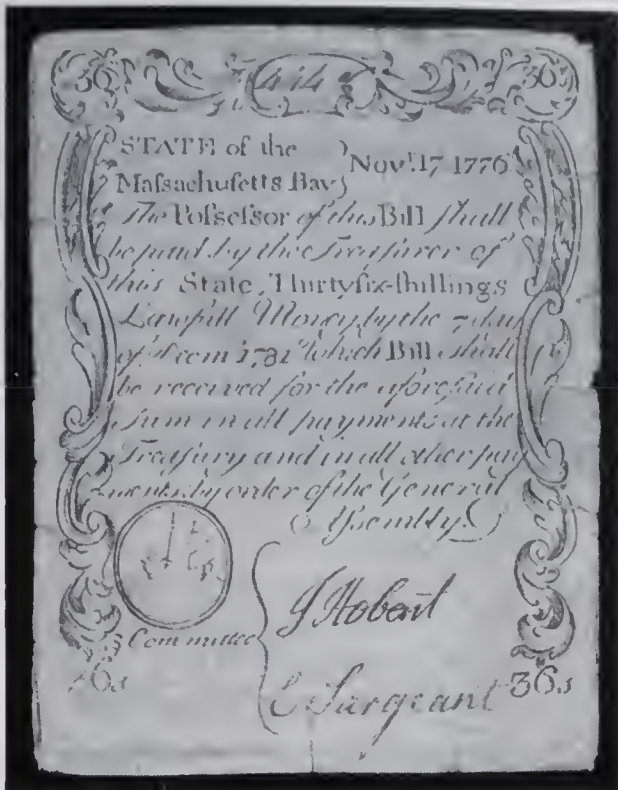 36s 36s
STATE of the
Maſsachuſetts Bay } Novr. 17 1776
The Poſseſsor of this Bill ſhall
be paid by the Treaſurer of
this State, Thirtyſix-ſhillings
Lawfull Money, by the 7 day
of Decem 1781 Which Bill ſhall
be received for the aforeſaid
Sum in all payments at the
Treaſury and in all other pay
ments by order of the General
Aſsembly
Committee { J Hobart
Sargeant
36s 36s